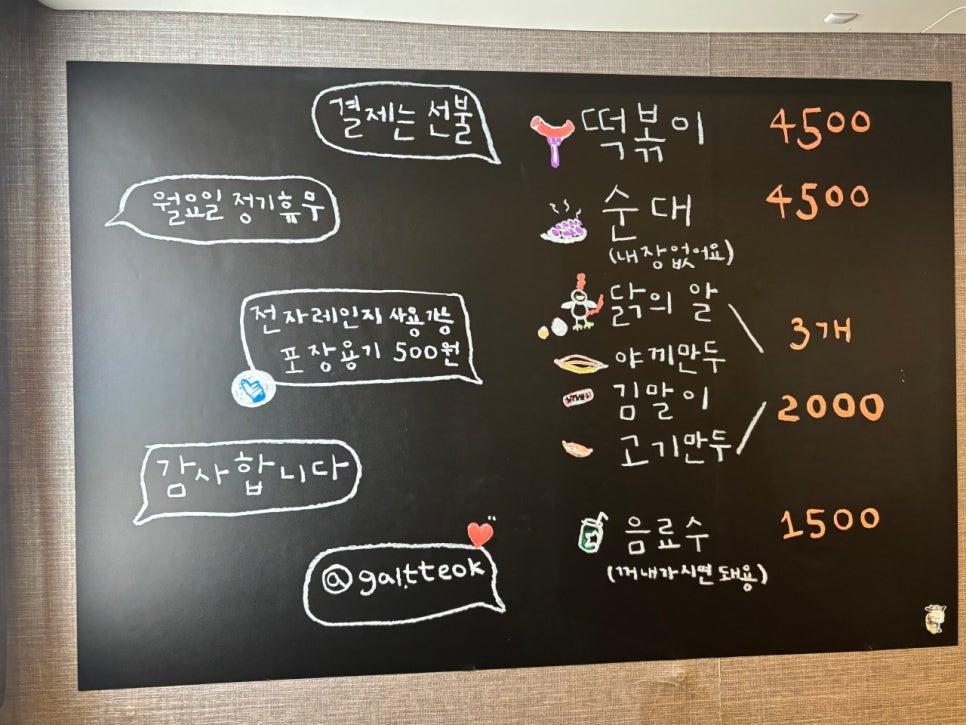 결제는 선불
월요일 정기휴무
전자레인지 사용가능
포장용기 500원
감사합니다
@gal.tteok
떡볶이 4500
순대 4500
(내장없어요)
닭의 알
야끼만두
김말이
고기만두
3개
2000
음료수 1500
(꺼내가시면 돼용)